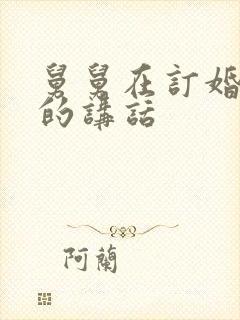 舅舅在訂婚
的講話
阿蘭